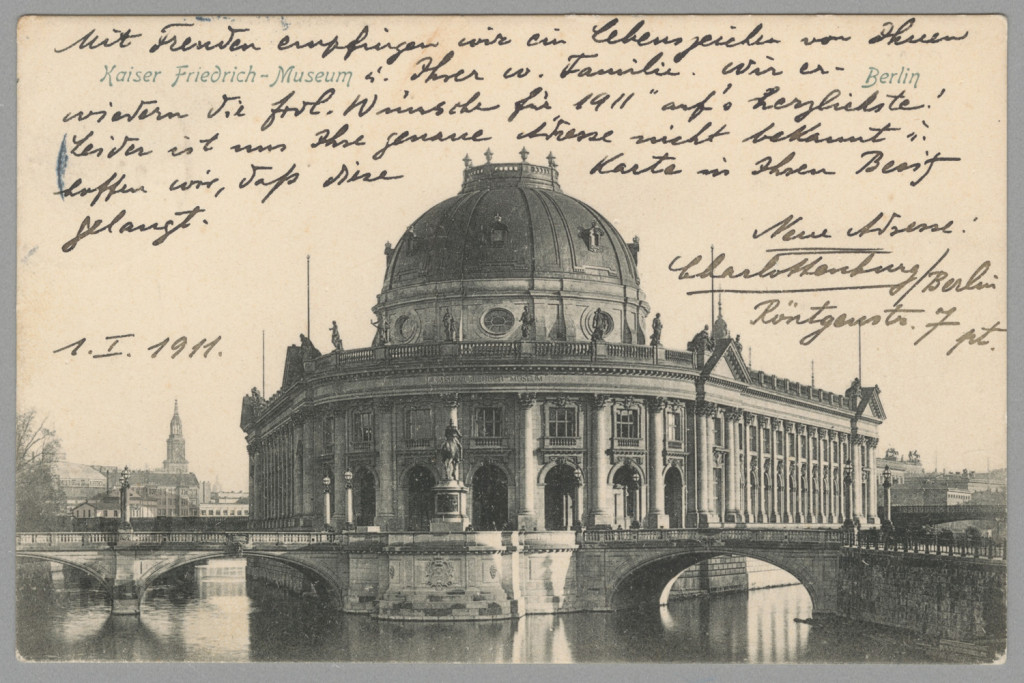 Mit Freuden empfingen wir ein Lebenszeichen von Ihnen
Kaiser Friedrich-Museum
u. Ihrer w. Familie. Wir er-
Berlin
wiedern die frdl. Wünsche für 1911 auf's herzlichste!
Leider ist uns Ihre genaue Adresse nicht bekannt u.
hoffen wir, daß diese Karte in Ihren Besitz
gelangt.
Neue Adresse:
Charlottenburg/Berlin
Röntgenstr. 7
pt.
1. I. 1911.